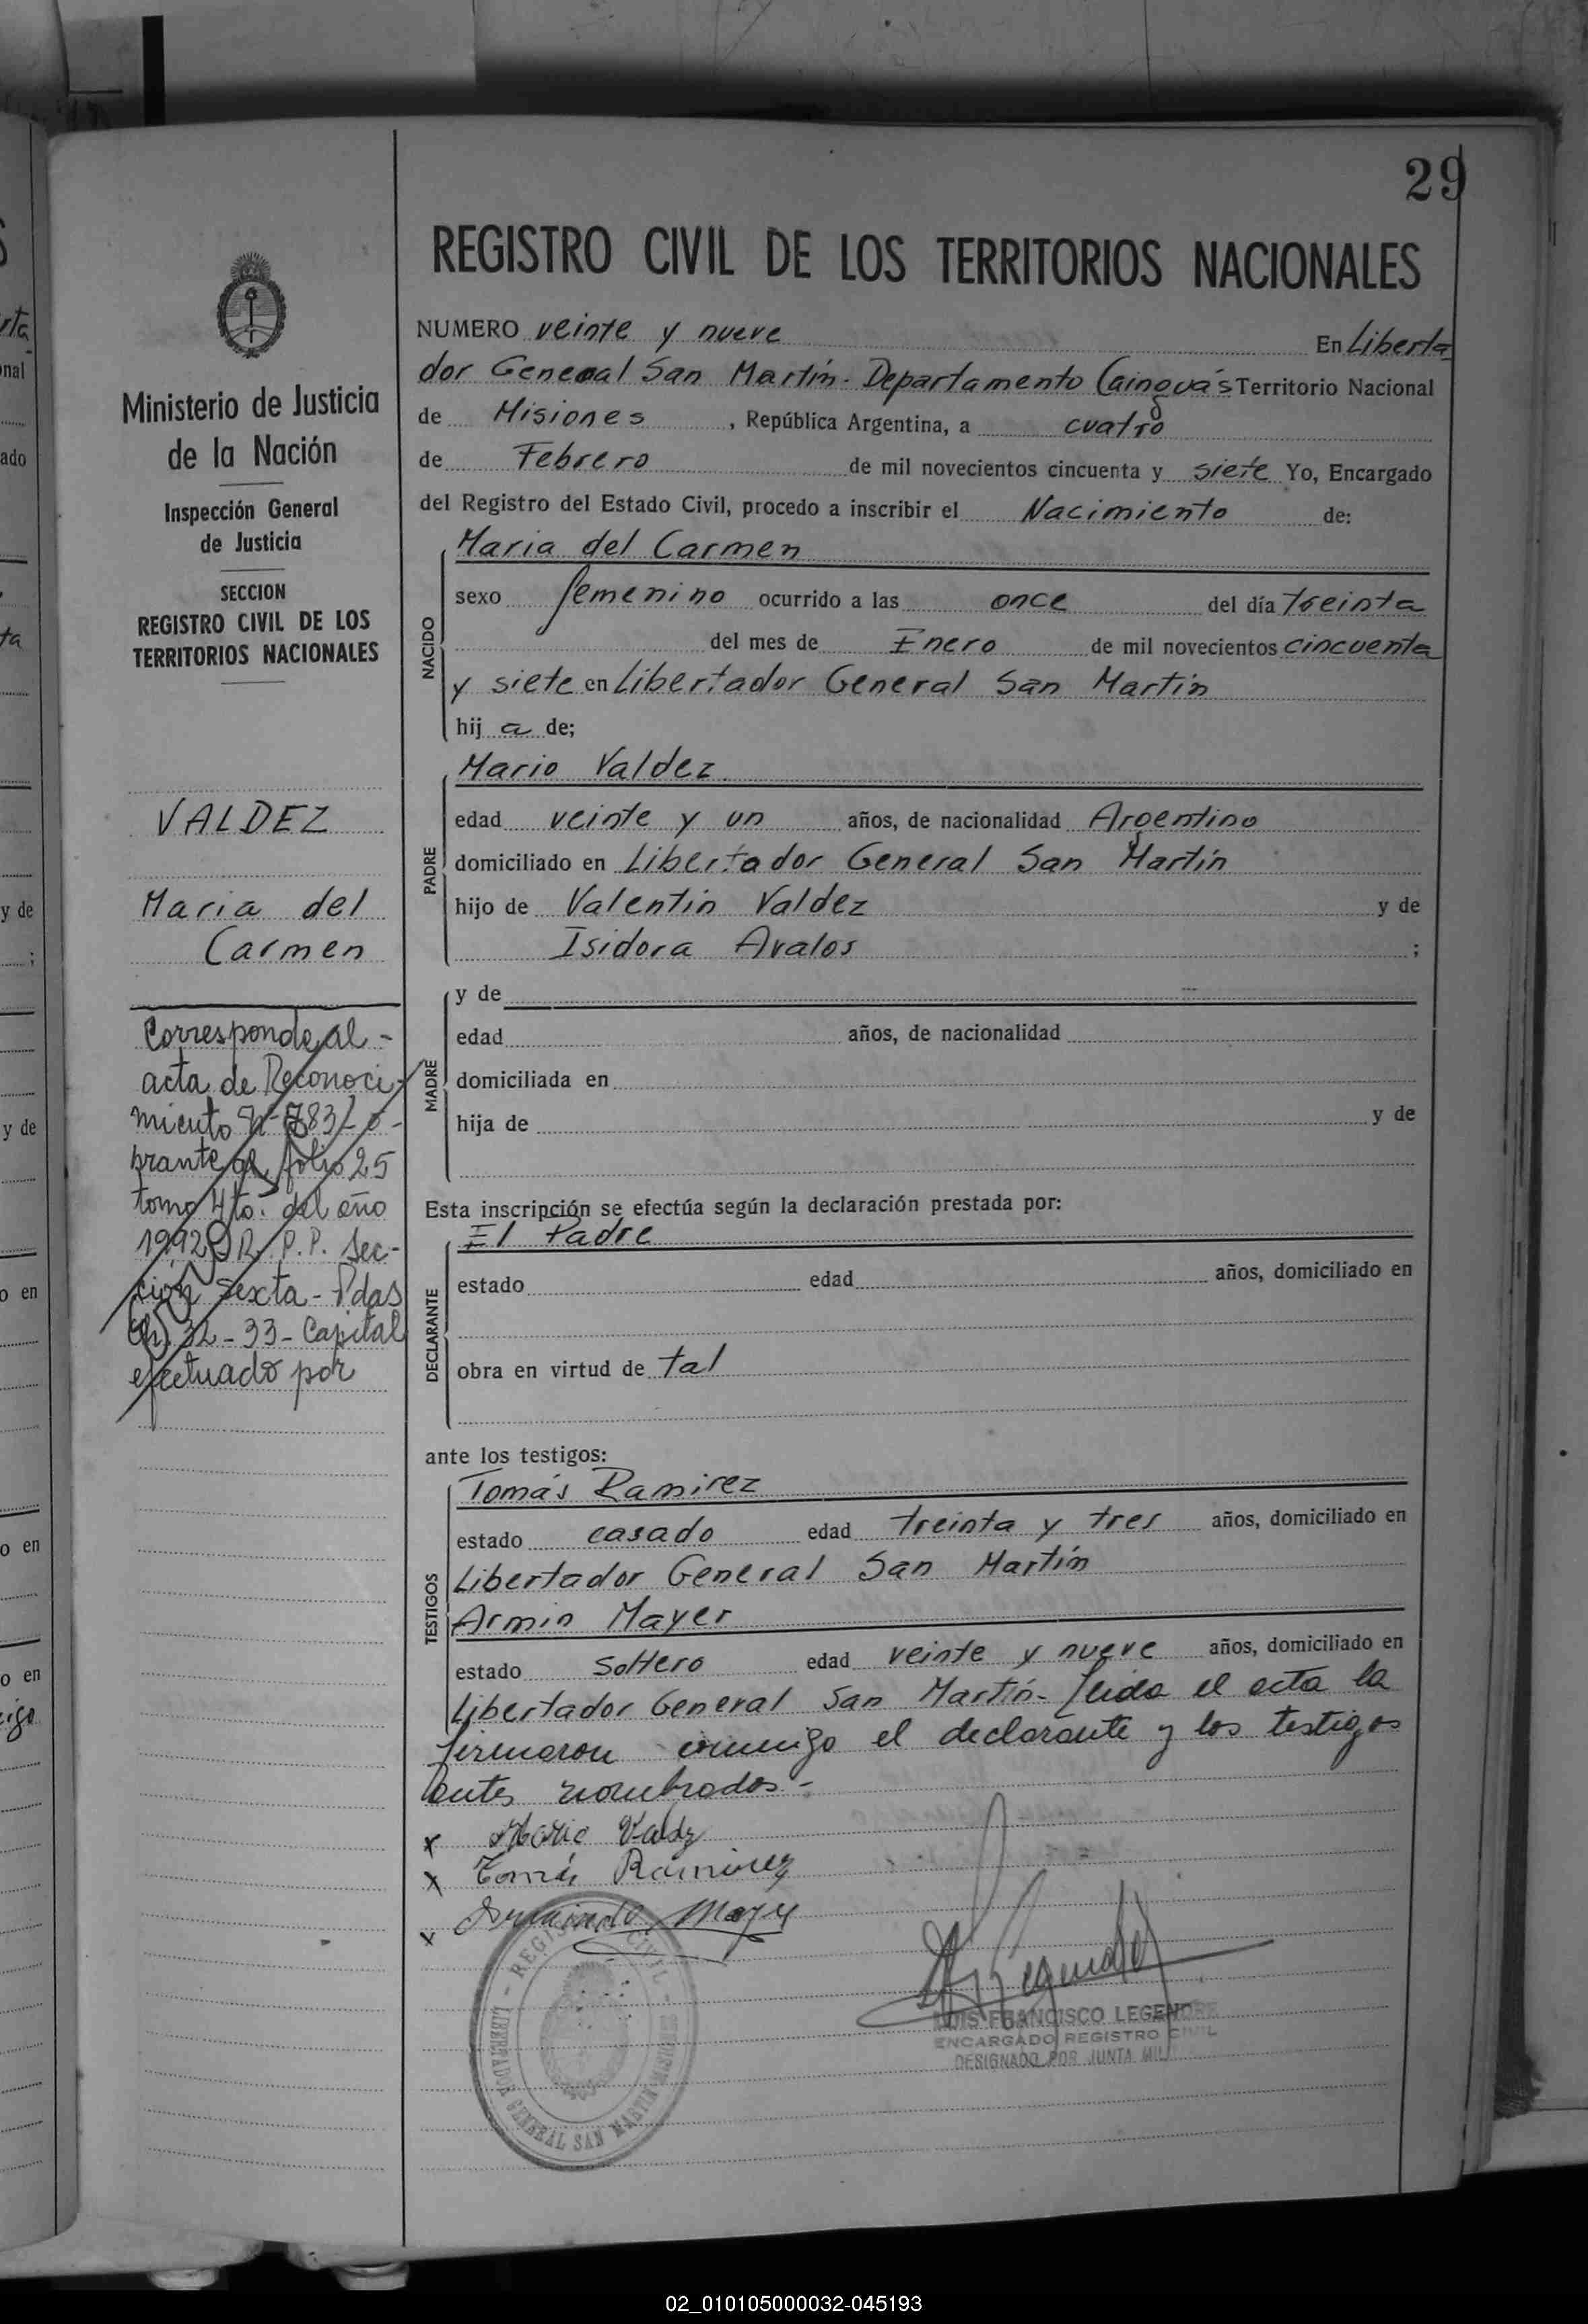 29
REGISTRO CIVIL DE LOS TERRITORIOS NACIONALES
Ministerio de Justicia
de la Nación
Inspección General
de Justicia
SECCION
REGISTRO CIVIL DE LOS
TERRITORIOS NACIONALES
VALDEZ
Maria del
Carmen
Corresponde al -
acta de Reconoci-
miento
folio 25
tomo 4to. del año
1992 R. P. P. Sec-
ción Sexta - Pdas
32 - 33 - Capital
efectuado por
NUMERO veinte y nueve En Liberta
dor General San Martín - Departamento Cainguás Territorio Nacional
de Misiones , República Argentina, a cuatro
de Febrero de mil novecientos cincuenta y siete Yo, Encargado
del Registro del Estado Civil, procedo a inscribir el Nacimiento de:
NACIDO
Maria del Carmen
sexo femenino ocurrido a las once del día treinta
del mes de Enero de mil novecientos cincuenta
y siete en Libertador General San Martín
hij a de;
PADRE
Mario Valdez
edad veinte y un años, de nacionalidad Argentino
domiciliado en Libertador General San Martín
hijo de Valentin Valdez y de
Isidora Avalos ;
MADRE
y de
edad años, de nacionalidad
domiciliada en
hija de y de
Esta inscripción se efectúa según la declaración prestada por:
DECLARANTE
El Padre
estado edad años, domiciliado en
obra en virtud de tal
ante los testigos:
TESTIGOS
Tomás Ramirez
estado casado edad treinta y tres años, domiciliado en
Libertador General San Martín
Armin Mayer
estado soltero edad veinte y nueve años, domiciliado en
Libertador General San Martín - Leida el acta la
firmaron conmigo el declarante y los testigos
antes nombrados -
x Mario Valdz
x Tomás Ramirez
x
REGISTRO CIVIL
LIBERTADOR GENERAL SAN MARTIN MISIONES
LUIS FRANCISCO LEGENDRE
ENCARGADO REGISTRO CIVIL
DESIGNADO POR JUNTA MIL
02_010105000032-045193